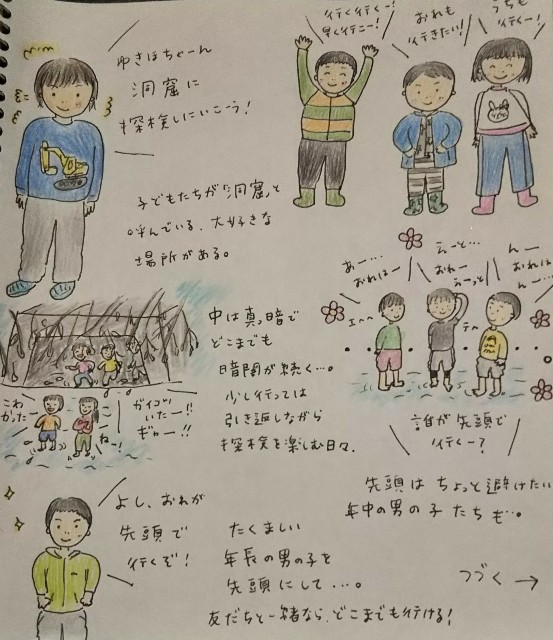 ゆきほちゃーん
洞窟に
探検しにいこう!
行く行くー!
早く行こー!
おれも
行きたい!
うちも
行くー!
子どもたちが「洞窟」と
呼んでいる、大好きな
場所がある。
中は真っ暗で
どこまでも
暗闇が続く…。
少し行っては
引き返しながら
探検を楽しむ日々。
こわ
かったー
ガイコツ
いたー!!
ギャー!!
ねー!
あー…
おれはー
えーと…
おれー
えーっと
んー
おれは
んー…
エヘヘ
テヘ
誰が先頭で
行くー?
先頭はちょっと避けたい
年中の男の子たちも…。
よし、おれが
先頭で
行くぞ!
たくましい
年長の男の子を
先頭にして…。
友だちと一緒なら、どこまでも行ける!
つづく→